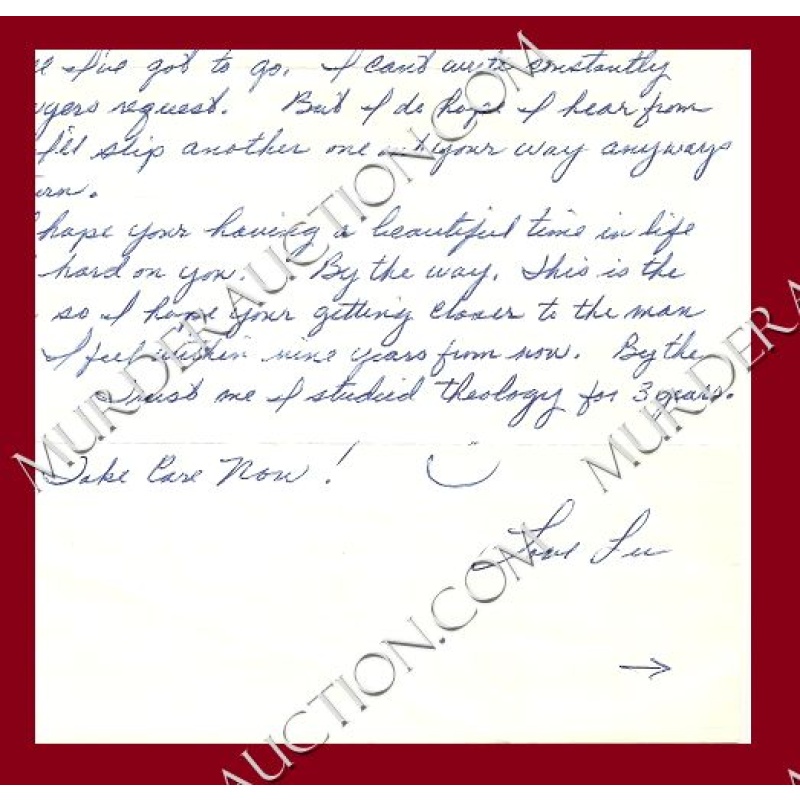 I've got to go. I can't write constantly
request. But I do hope I hear from
I'll slip another one your way anyways
hope your having a beautiful time in life
hard on you. By the way. This is the
so I hope your getting closer to the man
I feel within nine years from now. By the
Trust me I studied theology for 3 years.
Take Care Now!
Love
→
MURDERAUCTION.COM
MURDERA
AUCTION.COM